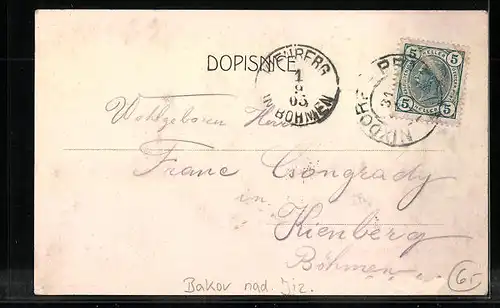 DOPISNICE
IENBERG
1
8
03
IN BÖHMEN
NIXDORF
31
5 5
5 5
HELLER
Wohlgeboren Herrn
Franc Csongrady
in
Kienberg
Böhmen
Bakov nad. Jiz.
6-